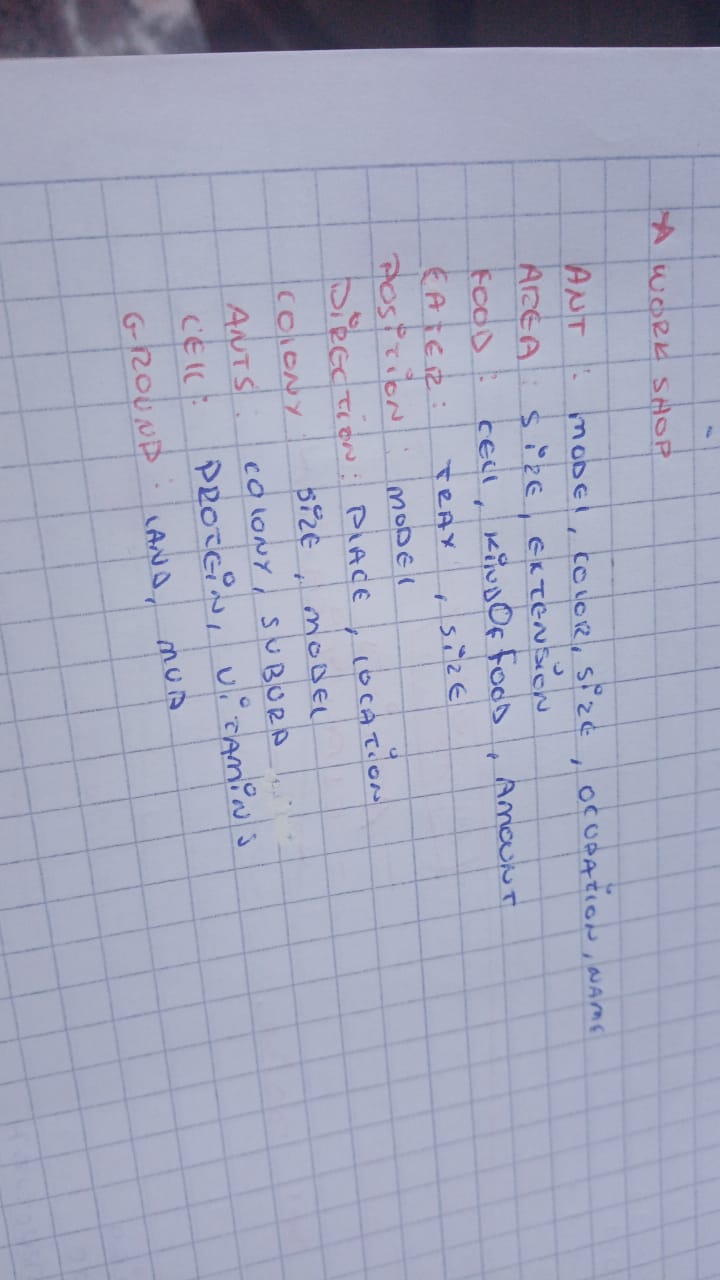 * WORK SHOP
ANT: MODEL, COLOR, SIZE, OCUPATION, NAME
AREA: SIZE, EXTENSION
FOOD: CELL, KIND OF FOOD, AMOUNT
EATER: TRAY, SIZE
POSITION: MODEL
DIRECTION: PLACE, LOCATION
COLONY: SIZE, MODEL
ANTS: COLONY, SUBURB
CELL: PROTEIN, VITAMINS
GROUND: LAND, MUD